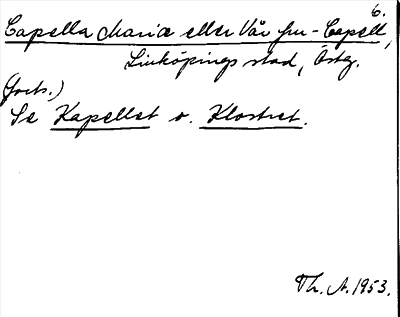 6.
Capella Mariæ eller Vår fru-Capell,
Linköpings stad, Östg.
(forts.)
Se Kapellet o. Klostret.
Th. A. 1953.